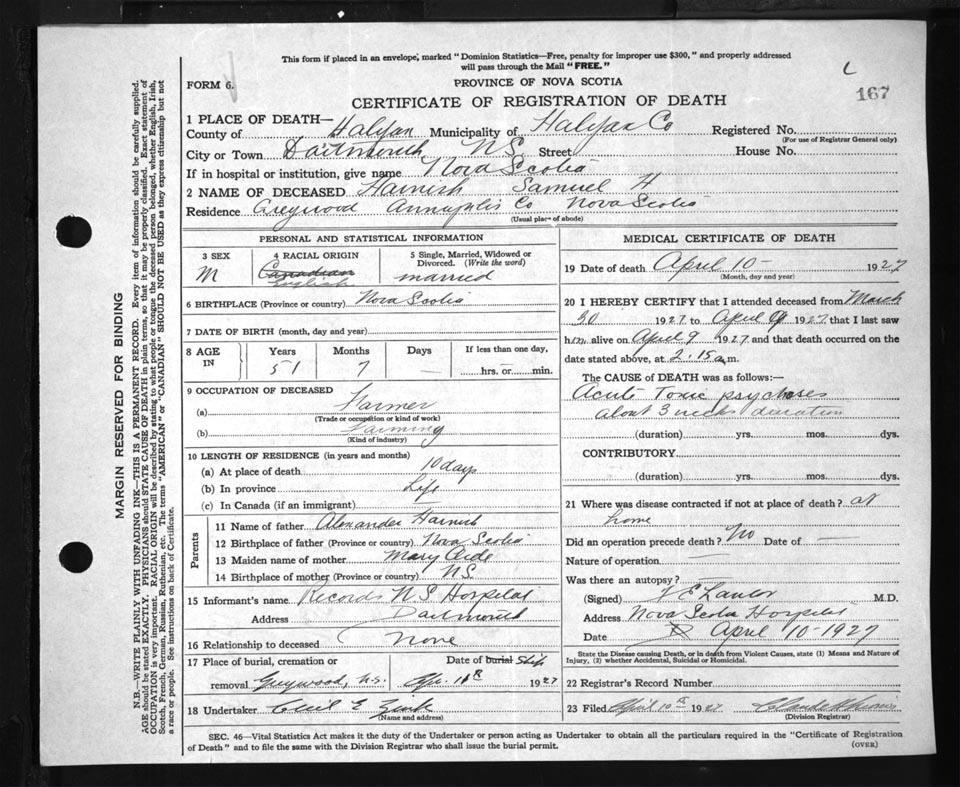 This form if placed in an envelope, marked "Dominion Statistics—Free, penalty for improper use $300," and properly addressed
will pass through the Mail "FREE."
FORM 6.
PROVINCE OF NOVA SCOTIA
167
CERTIFICATE OF REGISTRATION OF DEATH
1 PLACE OF DEATH—
County of Halifax Municipality of Halifax Co Registered No.
(For use of Registrar General only)
City or Town Dartmouth N.S. Street House No.
If in hospital or institution, give name Nova Scotia
2 NAME OF DECEASED Harnish Samuel H
Residence Greywood Annapolis Co Nova Scotia
(Usual place of abode)
PERSONAL AND STATISTICAL INFORMATION
3 SEX 4 RACIAL ORIGIN 5 Single, Married, Widowed or Divorced. (Write the word)
M Canadian English married
6 BIRTHPLACE (Province or country) Nova Scotia
7 DATE OF BIRTH (month, day and year)
8 AGE IN Years Months Days If less than one day,
51 7 — hrs. or min.
9 OCCUPATION OF DECEASED
(a) Farmer
(Trade or occupation or kind of work)
(b) Farming
(Kind of industry)
10 LENGTH OF RESIDENCE (in years and months)
(a) At place of death 10 days
(b) In province Life
(c) In Canada (if an immigrant)
Parents
11 Name of father Alexander Harnish
12 Birthplace of father (Province or country) Nova Scotia
13 Maiden name of mother Mary
14 Birthplace of mother (Province or country) N.S.
15 Informant's name Records N.S Hospital
Address Dartmouth
16 Relationship to deceased None
17 Place of burial, cremation or Date of burial Ship
removal Greywood, N.S. Apr. 11th 1927
18 Undertaker Cecil E
(Name and address)
MEDICAL CERTIFICATE OF DEATH
19 Date of death April 10 — 1927
(Month, day and year)
20 I HEREBY CERTIFY that I attended deceased from March
30 1927 to April 9 1927 that I last saw
him alive on April 9 1927 and that death occurred on the
date stated above, at 2.15 a.m.
The CAUSE of DEATH was as follows:—
Acute Toxic psychoses
about 3 weeks duration
(duration) yrs. mos. dys.
CONTRIBUTORY.
(duration) yrs. mos. dys.
21 Where was disease contracted if not at place of death? at
home
Did an operation precede death? No Date of —
Nature of operation —
Was there an autopsy? —
(Signed) Lawlor M.D.
Address Nova Scotia Hospital
Date April 10-1927
State the Disease causing Death, or in death from Violent Causes, state (1) Means and Nature of
Injury, (2) whether Accidental, Suicidal or Homicidal.
22 Registrar's Record Number
23 Filed April 10th 1927
(Division Registrar)
SEC. 46—Vital Statistics Act makes it the duty of the Undertaker or person acting as Undertaker to obtain all the particulars required in the "Certificate of Registration
of Death" and to file the same with the Division Registrar who shall issue the burial permit.
(OVER)
MARGIN RESERVED FOR BINDING
N.B.—WRITE PLAINLY WITH UNFADING INK—THIS IS A PERMANENT RECORD. Every item of information should be carefully supplied.
AGE should be stated EXACTLY. PHYSICIANS should STATE CAUSE OF DEATH in plain terms, so that it may be properly classified. Exact statement of
OCCUPATION is very important. RACIAL ORIGIN will be described by stating to what people or tongue the deceased person belonged, whether English, Irish,
Scotch, French, German, Russian, Ruthenian, etc. The terms "AMERICAN" or "CANADIAN" SHOULD NOT BE USED as they express citizenship but not
a race or people. See instructions on back of Certificate.